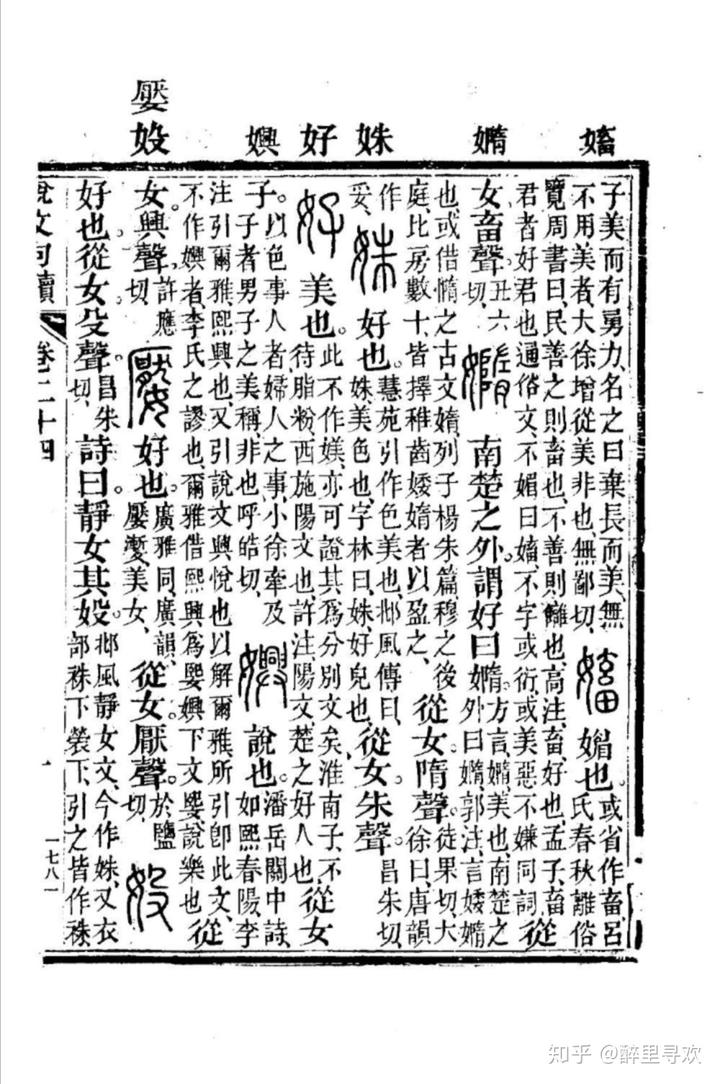 㜅
嫷
姝
好
嬹
嬮㚼
子美而有勇力名之曰棄長而美無
不用美者大徐增從美非也無鄙切
㜅媚也
或省作畜呂
氏春秋離俗
覽周書曰民善之則畜也不善則讎也高注畜好也孟子畜
君者好君也通俗文不媚曰㜅不字或衍或美惡不嫌同詞
從
女畜聲丑六切
嫷南楚之外謂好曰嫷
方言嫷美也南楚之
外曰嫷郭注言婑嫷
也或借惰之古文媠列子楊朱篇穆之後
庭比房數十皆擇稚齒婑媠者以盈之
從女隋聲
徒果切大
徐曰唐韻
作妥
姝好也
慧苑引作色美也邶風傳曰
姝美色也字林曰姝好皃也
從女朱聲
昌朱切
好美也
此不作媄亦可證其爲分別文矣淮南子不
待脂粉西施陽文也許注陽文楚之好人也
從女
子
以色事人者婦人之事小徐牽及
子者男子之美稱非也呼皓切
嬹說也
潘岳關中詩
如熙春陽李
注引爾雅熙興也又引說文興悅也以解爾雅所引卽此文
不作嬹者李氏之謬也爾雅借熙興爲媐嬹下文媐說樂也
從
女興聲許應切
嬮好也
廣雅同廣韻
嬮 美女
從女厭聲於鹽切
㚼
好也從女殳聲昌朱切詩曰靜女其㚼
邶風靜女文今作姝又衣
部袾下 下引之皆作袾
說文句讀 卷二十四
一七八一
知乎 @醉里寻欢